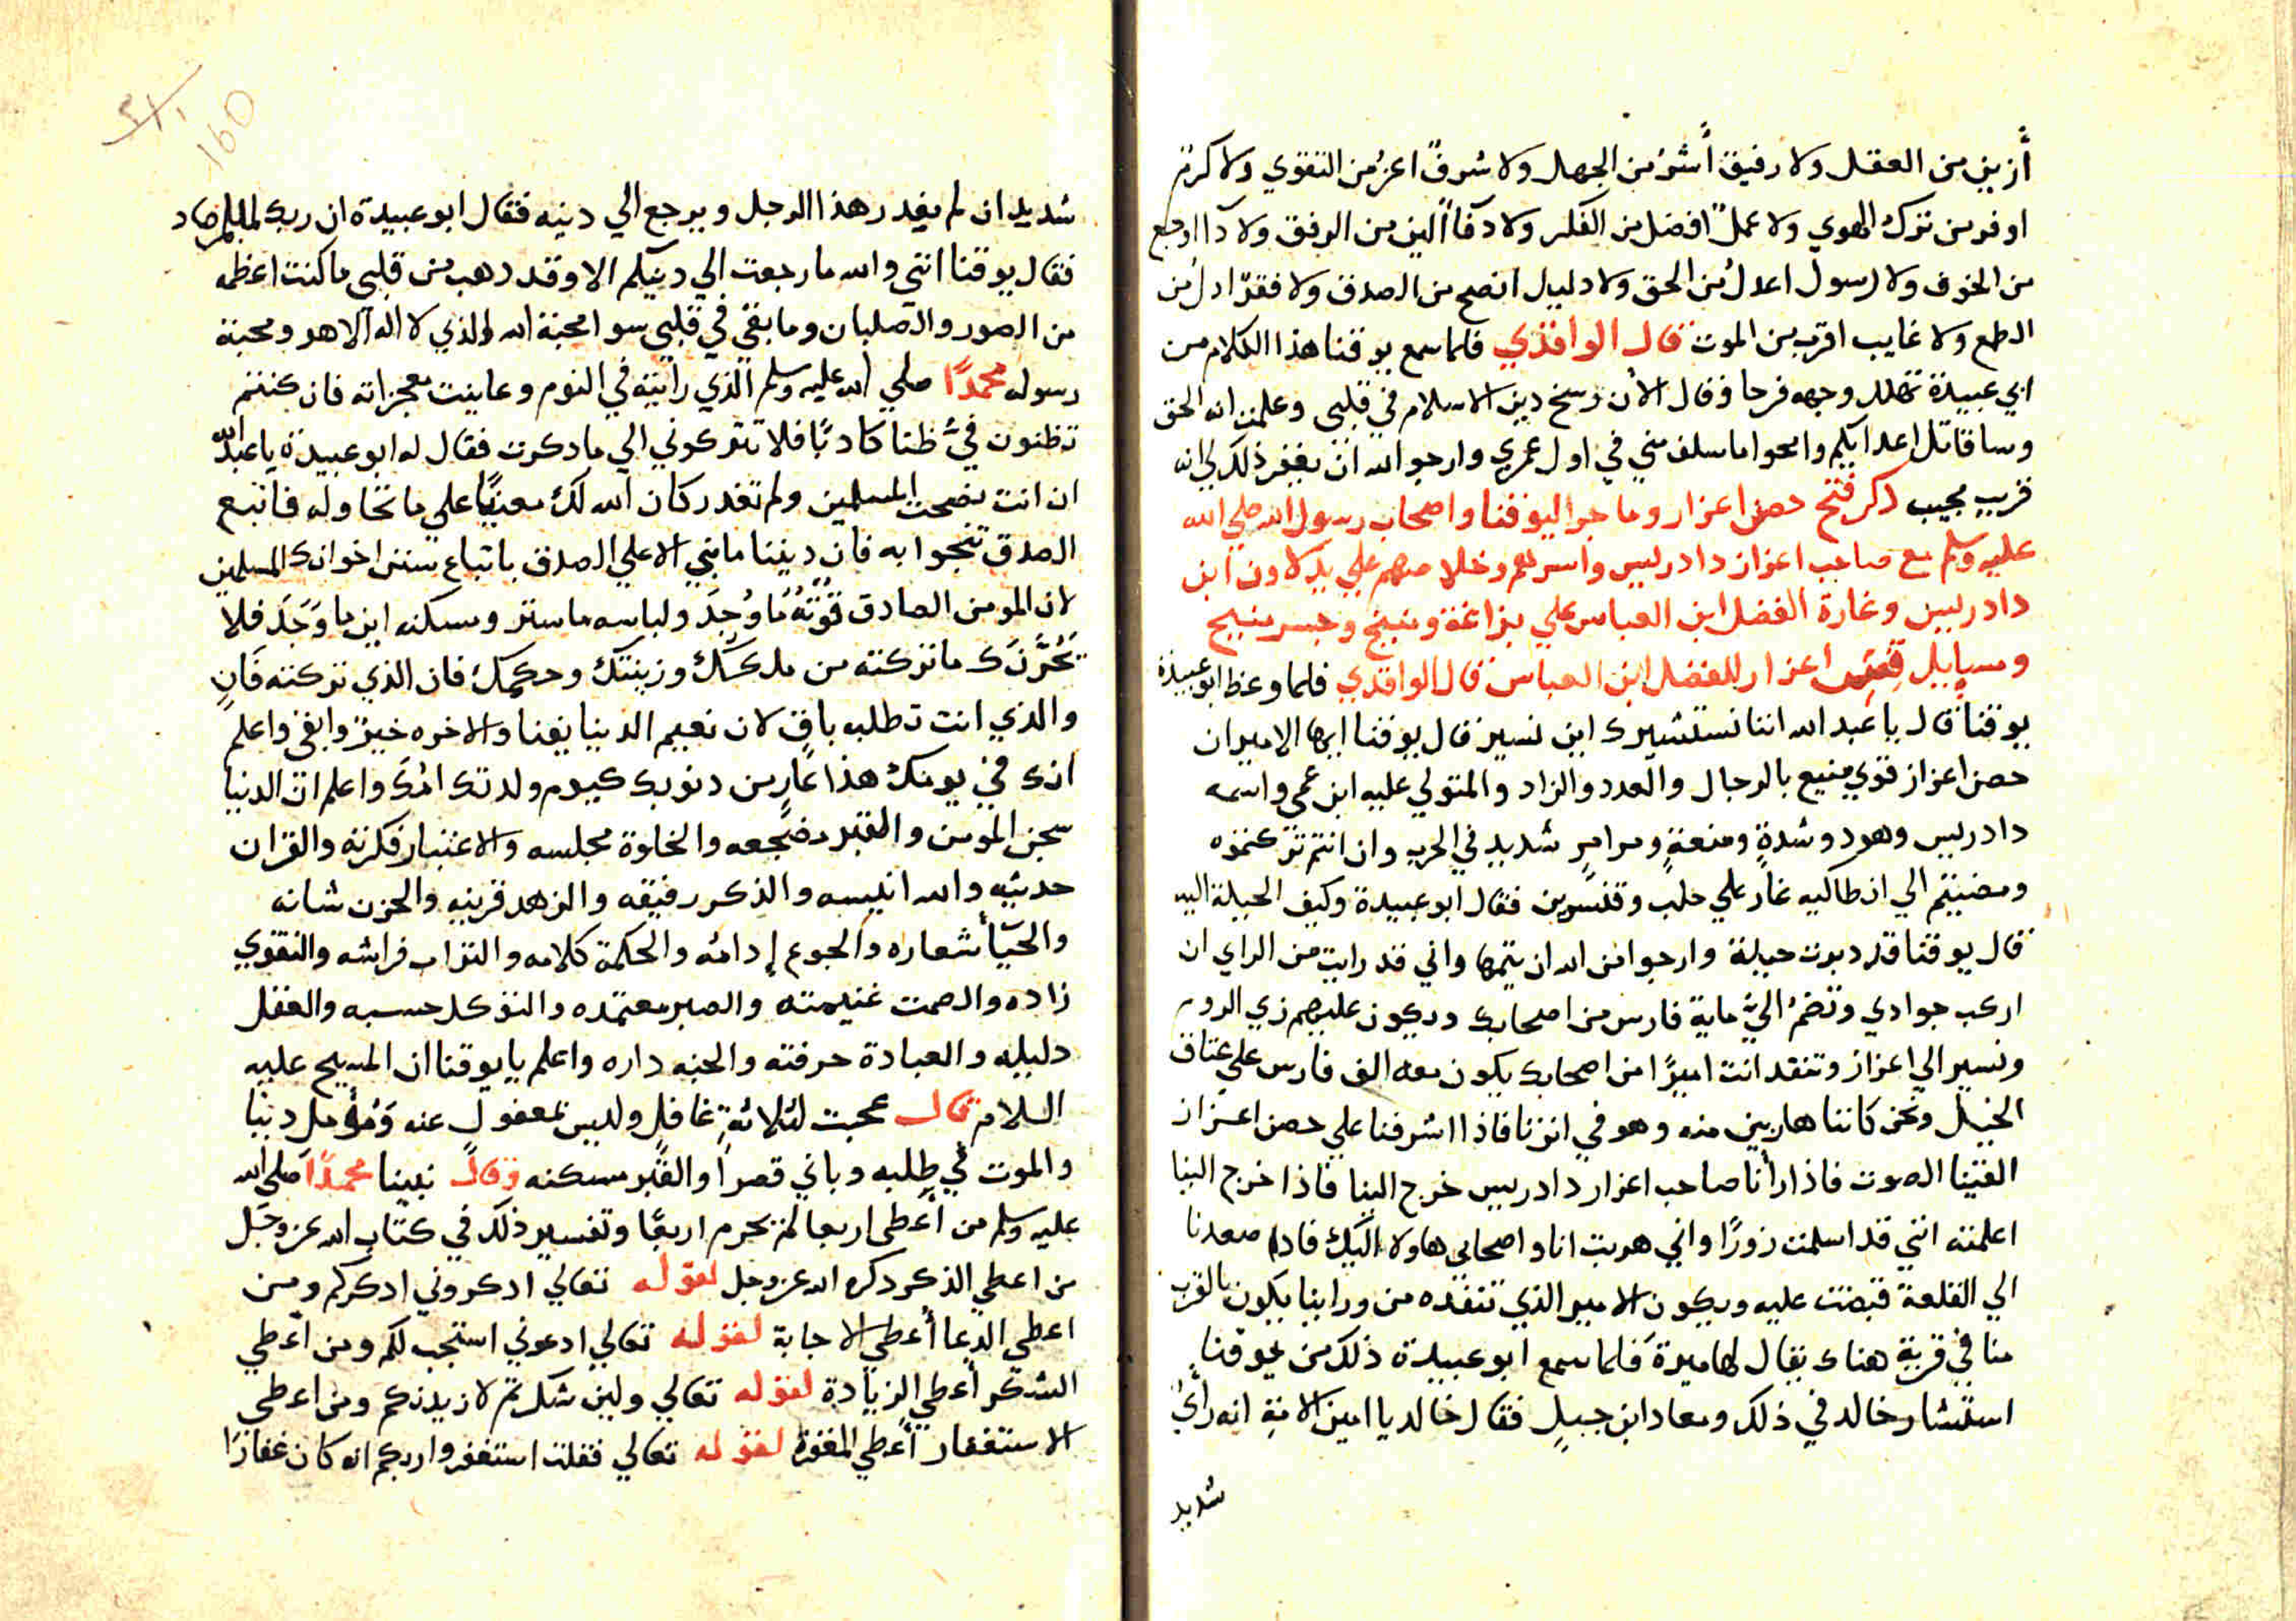 أزين من العقل ولا رفيق أشر من الجهل ولا شرفً اعز من التقوي ولا كرم
اوفر من ترك الهوي ولا عملً افضل من الفكر ولا الين من الرفق ولا اوجع
من الخوف ولا رسول اعدل من الحق ولا دليل انصح من الصدق ولا فقرّ اذل من
الطمع ولا غايب اقرب من الموت قال الواقدي فلما سمع يوقنا هذا الكلام من
ابي عبيدة تهلل وجهه فرحا وقال الأن رسخ دين الاسلام في قلبي وعلمت انه الحق
وساقاتل اعدايكم وامحوا ما سلف مني في اول عمري وارجوا الله ان يغفر ذلك لي انه
قريب مجيب ذكر فتح حصن اعزاز وما جرا ليوقنا واصحاب رسول الله صلي الله
عليه وسلم مع صاحب اعزاز دادريس واسرهم وخلاصهم علي يد لاون ابن
دادريس وغارة الفضل ابن العباس علي بزاغة ومنبج وجسر منبج
اعزاز للفضل ابن العباس قال الواقدي فلما وعظ ابو عبيدة
يوقنا قال يا عبد الله اننا نستشيرك اين نسير قال يوقنا ايها الامير ان
حصن اعزاز قوي منيع بالرجال والعدد والزاد والمتولي عليه ابن عمي واسمه
دادريس وهو ذو شدةٍ ومنعةٍ ومراسٍ شديد في الحرب وان انتم تركتموه
ومضيتم الي انطاكيه غار علي حلب وقنسرين فقال ابو عبيدة وكيف الحيلة اليه
قال يوقنا قد دبرت حيلة وارجوا من الله ان يتمها واني قد رايت من الراي ان
اركب جوادي وتضم اليَّ ماية فارس من اصحابك ويكون عليهم زي الروم
ونسير الي اعزاز وتنفد انت اميرًا من اصحابك يكون معه الف فارس علي عتاق
الخيل ونحن كاننا هاربين منه وهو في اثرنا فاذا اشرفنا علي حصن اعزاز
القينا الصوت فاذا رأنا صاحب اعزاز دادريس خرج الينا فاذا خرج الينا
اعلمته انني قد اسلمت زورًا واني هربت انا واصحابي هاولا اليك فاذا صعدنا
الي القلعة قبضت عليه ويكون الامير الذي تنفده من وراينا يكون بالقرب
منا في قرية هناك يقال لها ميرة فلما سمع ابو عبيدة ذلك من يوقنا
استشار خالد في ذلك ومعاد ابن جبلٍ فقال خالد يا امين الامةِ انه رأيٌ
شديد
160
شديد ان لم يغدر هذا الرجل ويرجع الي دينه فقال ابو عبيدة ان ربك لبالمرصاد
فقال يوقنا انني والله ما رجعت الي دينكم الا وقد دهب من قلبي ما كنت اعظمه
من الصور والصلبان وما بقي في قلبي سوا محبة الله الذي لا اله الا هو ومحبة
رسوله محمدًا صلي الله عليه وسلم الذي رايته في النوم وعاينت معجزاته فان كنتم
تظنون فيَّ ظنا كادبًا فلا تتركوني الي ما دكرت فقال له ابو عبيدة يا عبد الله
ان انت نصحت المسلمين ولم تغدر كان الله لك معينًا علي ما تحاوله فاتبع
الصدق تنجوا به فان ديننا ما بني الا علي الصدق باتباع سنن اخوانك المسلمين
لان المومن الصادق قُوتُهُ مَا وُجِدَ ولباسه ما ستر ومسكنه اين ما وَجَدَ فلا
يَحْزَنَك ما تركته من ملكك وزينتك وحكمك فان الذي تركته فَانٍ
والذي انت تطلبه باقٍ لان نعيم الدنيا يفنا والاخره خيرٌ وابقي واعلم
انك في يومك هذا عَارٍ من دنوبك كيوم ولدتك امُك واعلم ان الدنيا
سجن المومن والقبر مضجعه والخلوة مجلسه والاعتبار فكرته والقران
حديثه والله انيسه والذكر رفيقه والزهد قرينه والحزن شانه
والحيّأ شعاره والجوع إدامُه والحكمة كلامه والتراب فراشه والتقوي
زاده والصمت غنيمته والصبر معتمده والتوكل حسبه والعقل
دليله والعبادة حرفته والجنه داره واعلم يا يوقنا ان المسيح عليه
السلام قال عجبت لثلاثةٍ غافلٍ وليس بمغفولٍ عنه وَمُؤَمل دنيا
والموت في طلبه وباني قصراً والقبر مسكنه وقال نبينا محمدًا صلي الله
عليه وسلم من أعطي اربعا لم يحرم اربعًا وتفسير ذلك في كتاب الله عز وجل
من اعطي الذكر دكره الله عز وجل لقوله تعالي ادكروني ادكركم ومن
اعطي الدعا أعطي الاجابة لقوله تعالي ادعوني استجب لكم ومن أعطي
الشكر أعطي الزيادة لقوله تعالي ولين شكرتم لازيدنكم ومن اعطي
الاستغفار أعطي المغفرة لقوله تعالي فقلت استغفروا ربكم انه كان غفارًا